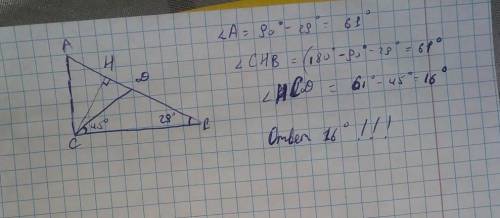 A
H
D
C
45°
29°
B
∠A = 90° - 29° = 61°
∠CHB = (180° - 90° - 29° = 61°
∠HCD = 61° - 45° = 16°
Ответ 16° !!!